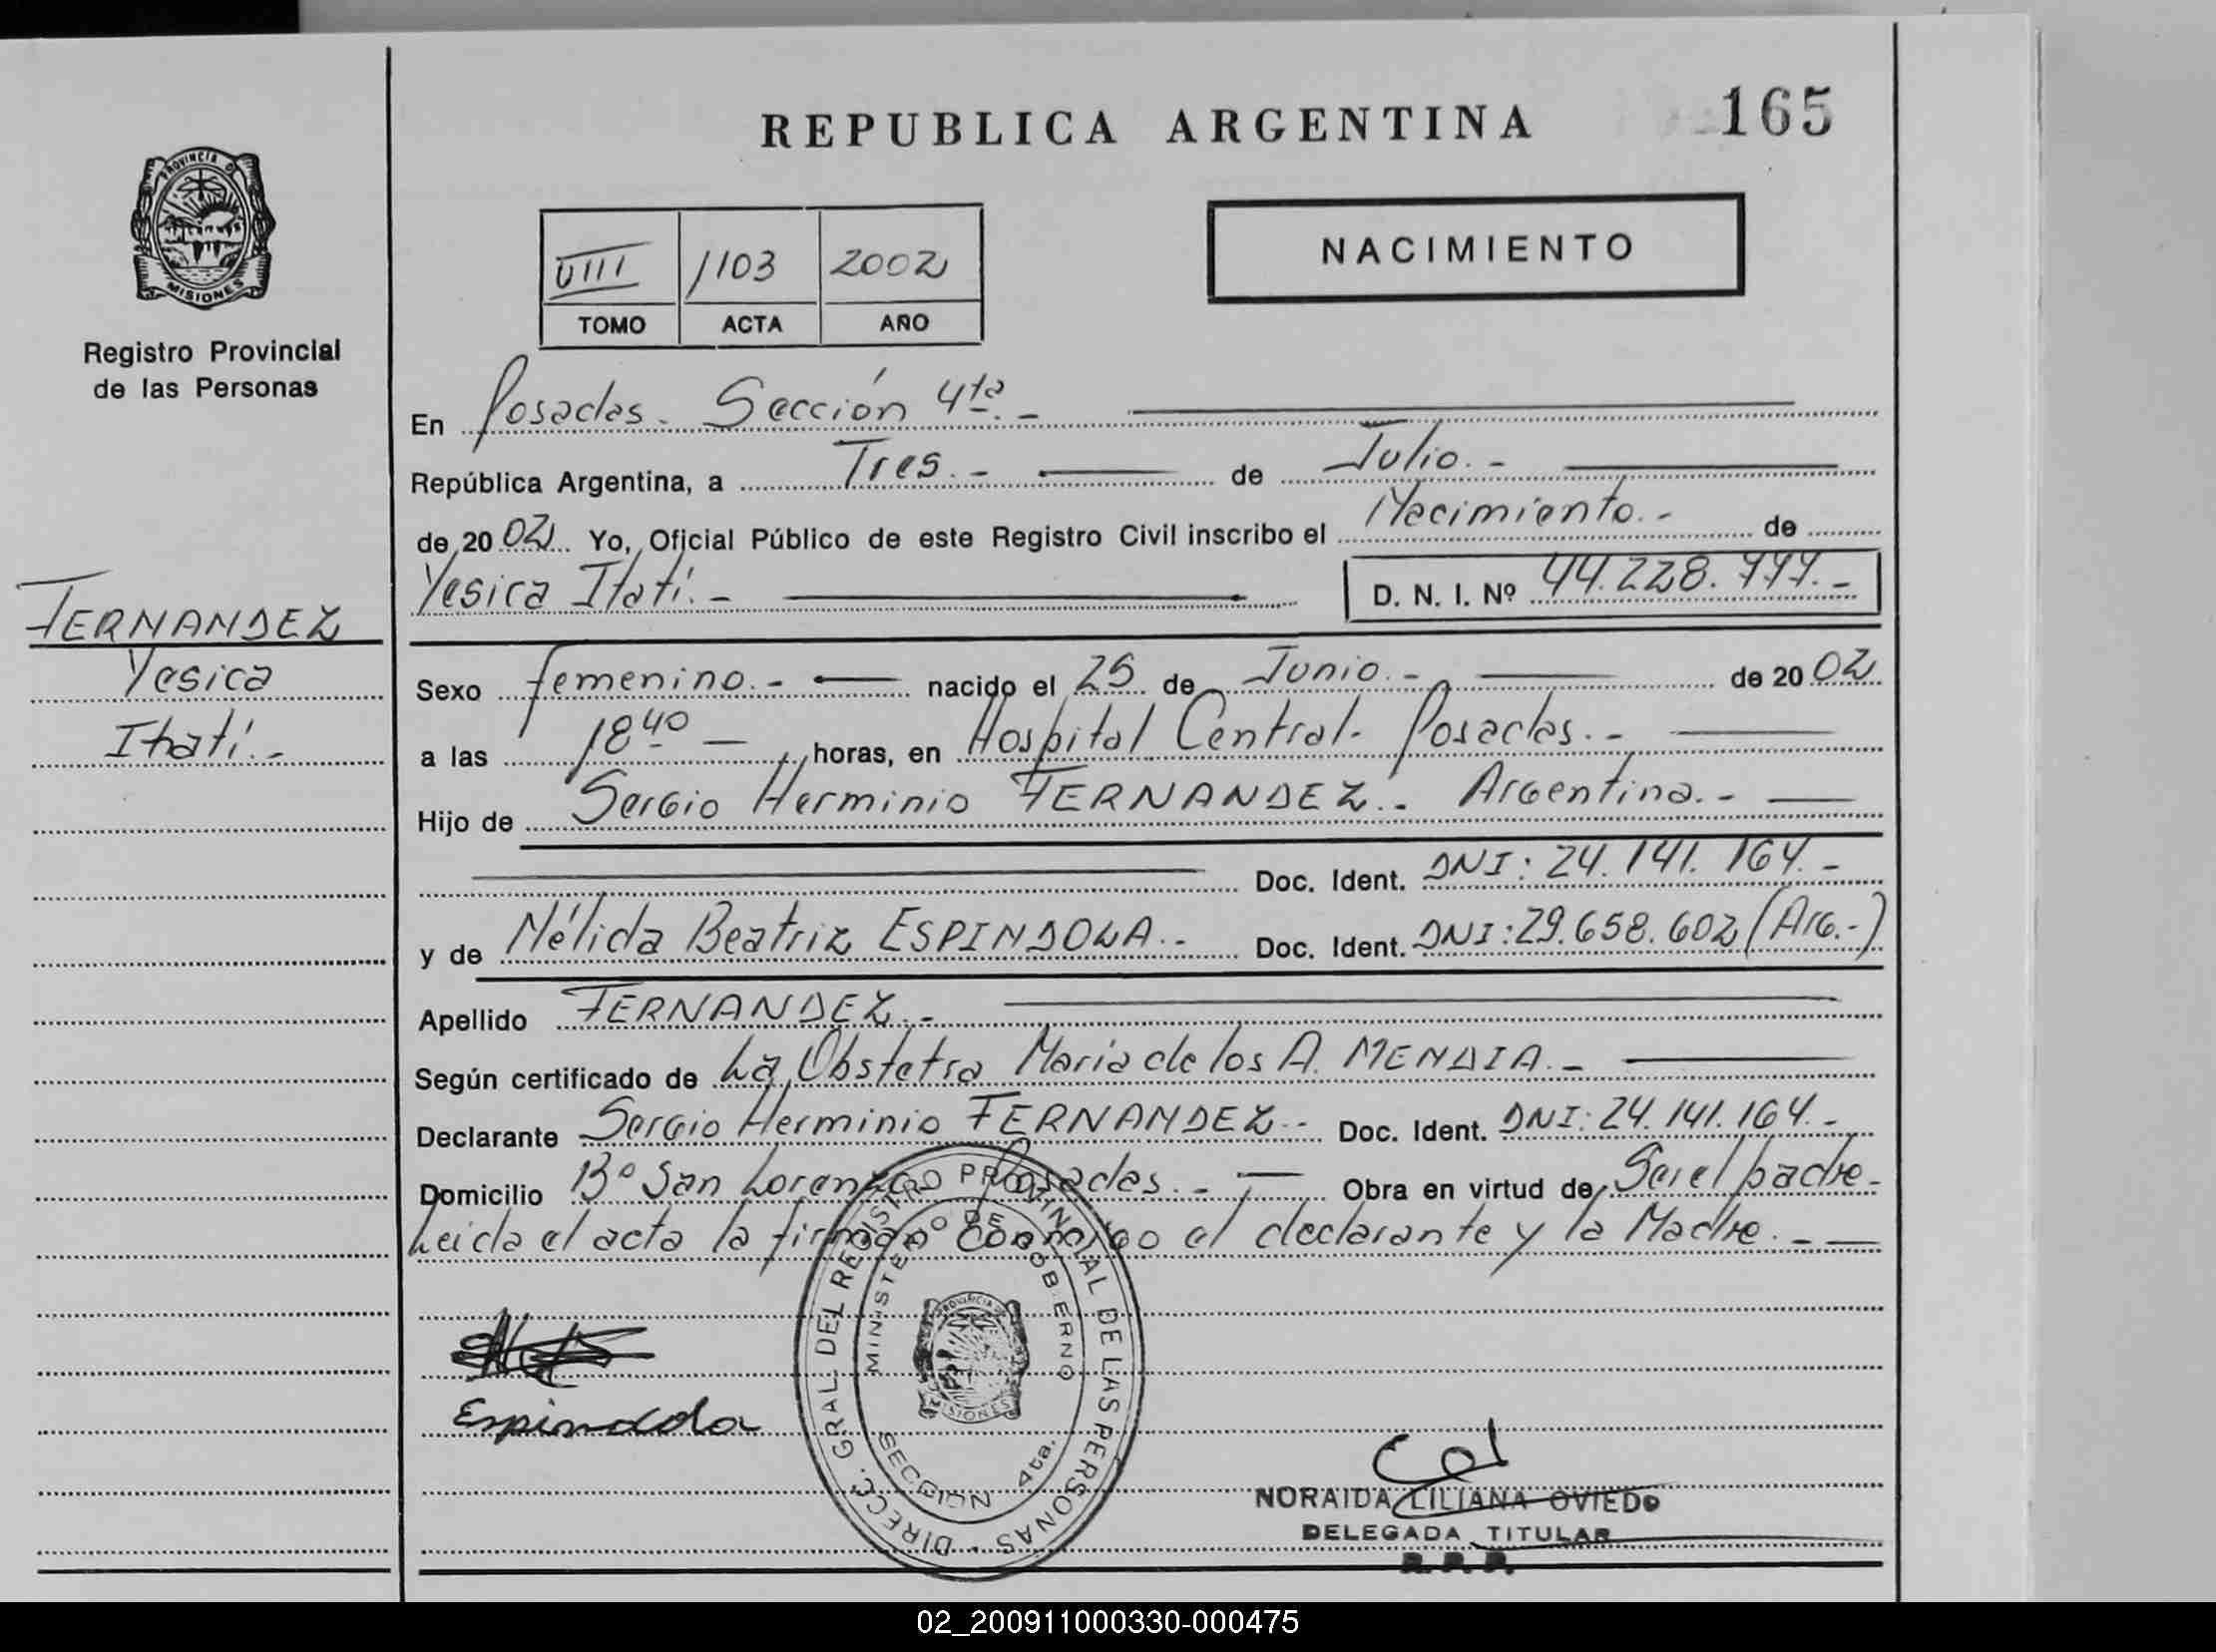 REPUBLICA ARGENTINA
165
PROVINCIA D
MISIONES
Registro Provincial
de las Personas
VIII 1103 2002
TOMO ACTA AÑO
NACIMIENTO
En Posadas. Sección 4ta.-
República Argentina, a Tres.- de Julio.-
de 2002 Yo, Oficial Público de este Registro Civil inscribo el Nacimiento.- de
Yesica Itatí.- D. N. I. Nº 44.228.777.-
FERNANDEZ
Yesica
Itatí.-
Sexo femenino.- nacido el 25 de Junio.- de 2002
a las 18 40 horas, en Hospital Central- Posadas.-
Hijo de Sergio Herminio FERNANDEZ.- Argentina.-
Doc. Ident. DNI: 24.141.164.-
y de Nélida Beatriz ESPINDOLA.- Doc. Ident. DNI: 29.658.602 (Arg.-)
Apellido FERNANDEZ.-
Según certificado de La Obstetra Maria de los A. MENDIA.-
Declarante Sergio Herminio FERNANDEZ.- Doc. Ident. DNI: 24.141.164.-
Domicilio Bº San Lorenzo Posadas.- Obra en virtud de Ser el padre-
Leida el acta la firman conmigo el declarante y la Madre.-
DIRECC. GRAL DEL REGISTRO PROVINCIAL DE LAS PERSONAS
MINISTERIO DE GOBIERNO
PROVINCIA
MISIONES
SECCION 4ta.
Espindola
NORAIDA LILIANA OVIEDO
DELEGADA TITULAR
R.P.P.
02_200911000330-000475